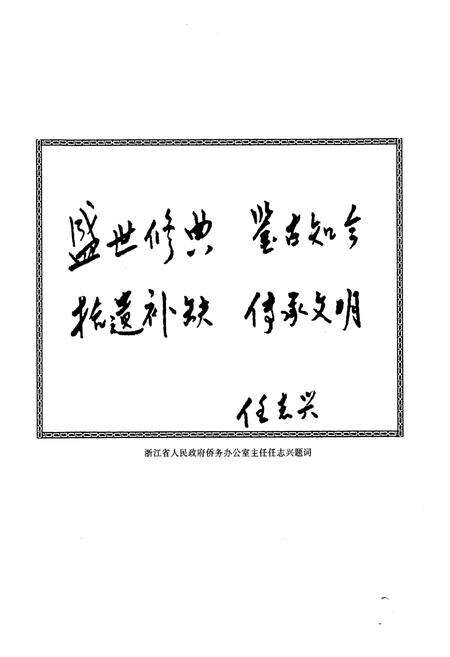 盛世修典 鉴古知今
拾遗补缺 传承文明
任志兴
浙江省人民政府侨务办公室主任任志兴题词